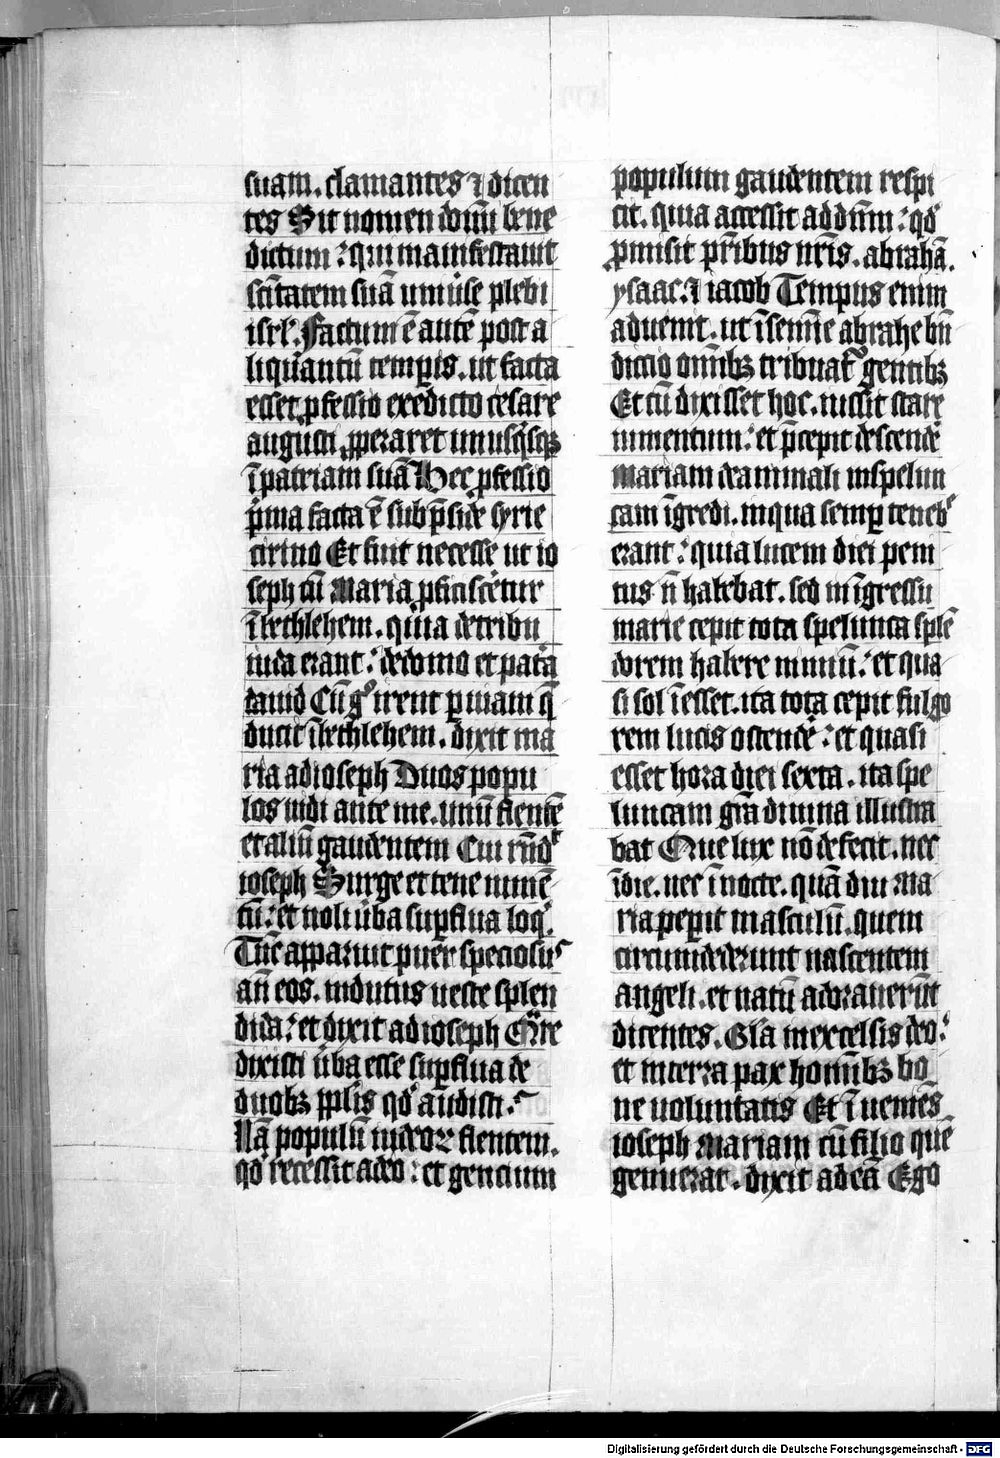 suam. clamantes ⁊ dicen
tes Sit nomen dom̅i bene
dictum : qui manifestauit
sc̅itatem sua̅ uniu̅se plebi
isrl̅. Factum e̅ aute̅ post a
liquantu̅ tempis̅. ut facta
esset ꝓfessio ex edicto cesare
augusti ꝓperaret unusqsqꝫ
i̅ patriam sua̅ Hec ꝓfessio
p̅ma facta e̅ sub p̅side syrie
cirino Et fuit necesse ut io
seph cu̅ Maria ꝓficisce̅tur
i̅ bethlehem. quia de tribu
iuda erant : de domo et pat̅a
dauid Cu̅ gͦ irent ꝑ uiam q̅
ducit i̅ bethlehem. dixit ma
ria ad ioseph Duos popu
los uidi ante me. unu̅ flente̅
et aliu̅ gaudentem Cui rn̅dt
ioseph Surge et tene iume̅
tu̅ : et noli u̅ba suꝑflua loqͥ.
Tu̅c apparuit puer speciosus
an̅ eos. indutus ueste splen
dida : et dixit ad ioseph Qͣre
dixisti u̅ba esse suꝑflua de
duobꝫ ppl̅is qͦd audisti.
Na̅ populu̅ iudeoꝝ flentem.
qͦd recessit a deo : et gencium
populum gaudentem respi
cit. quia accessit ad dn̅m : qͦd
ꝓmisit pr̅ibus nr̅is. abraha̅.
ysaac. ⁊ iacob Tempus enim
aduenit. ut i̅ semi̅e abrahe bn̅
diccio om̅ibꝫ tribuat̅ gentibꝫ
Et cu̅ dixisset hoc. iussit stare
iumentum : et p̅cepit descende̅
Mariam de animali in spelun
cam i̅gredi. in qua semꝑ teneb̅
erant : quia lucem diei peni
tus n̅ habebat. sed in i̅gressu
marie cepit tota spelunca sple̅
dorem habere nimiu̅ : et qua
si sol i̅esset. ita tota cepit fulgo
rem lucis ostende̅ : et quasi
esset hora diei sexta. ita spe
luncam gr̅a diuina illustra
bat Que lux no̅ defecit. nec
i̅ die. nec i̅ nocte. qua̅diu Ma
ria peꝑit masculu̅. quem
circumdederunt nascentem
angeli. et natu̅ adorauer̅ut
dicentes. Gl̅a in excelsis deo :
et in terra pax homi̅bꝫ bo
ne uoluntatis Et i̅uenies̅
ioseph Mariam cu̅ filio que̅
genuerat. dixit ad ea̅ Ego
Digitalisierung gefördert durch die Deutsche Forschungsgemeinschaft - DFG